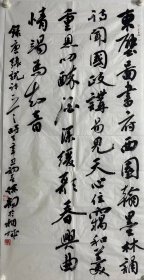 東壁圖書府西園翰墨林誦
詩聞國政講易見天心位竊和羹
重恩叨醉酒深緩歌春興曲
情竭為知音
錄唐張說詩一首